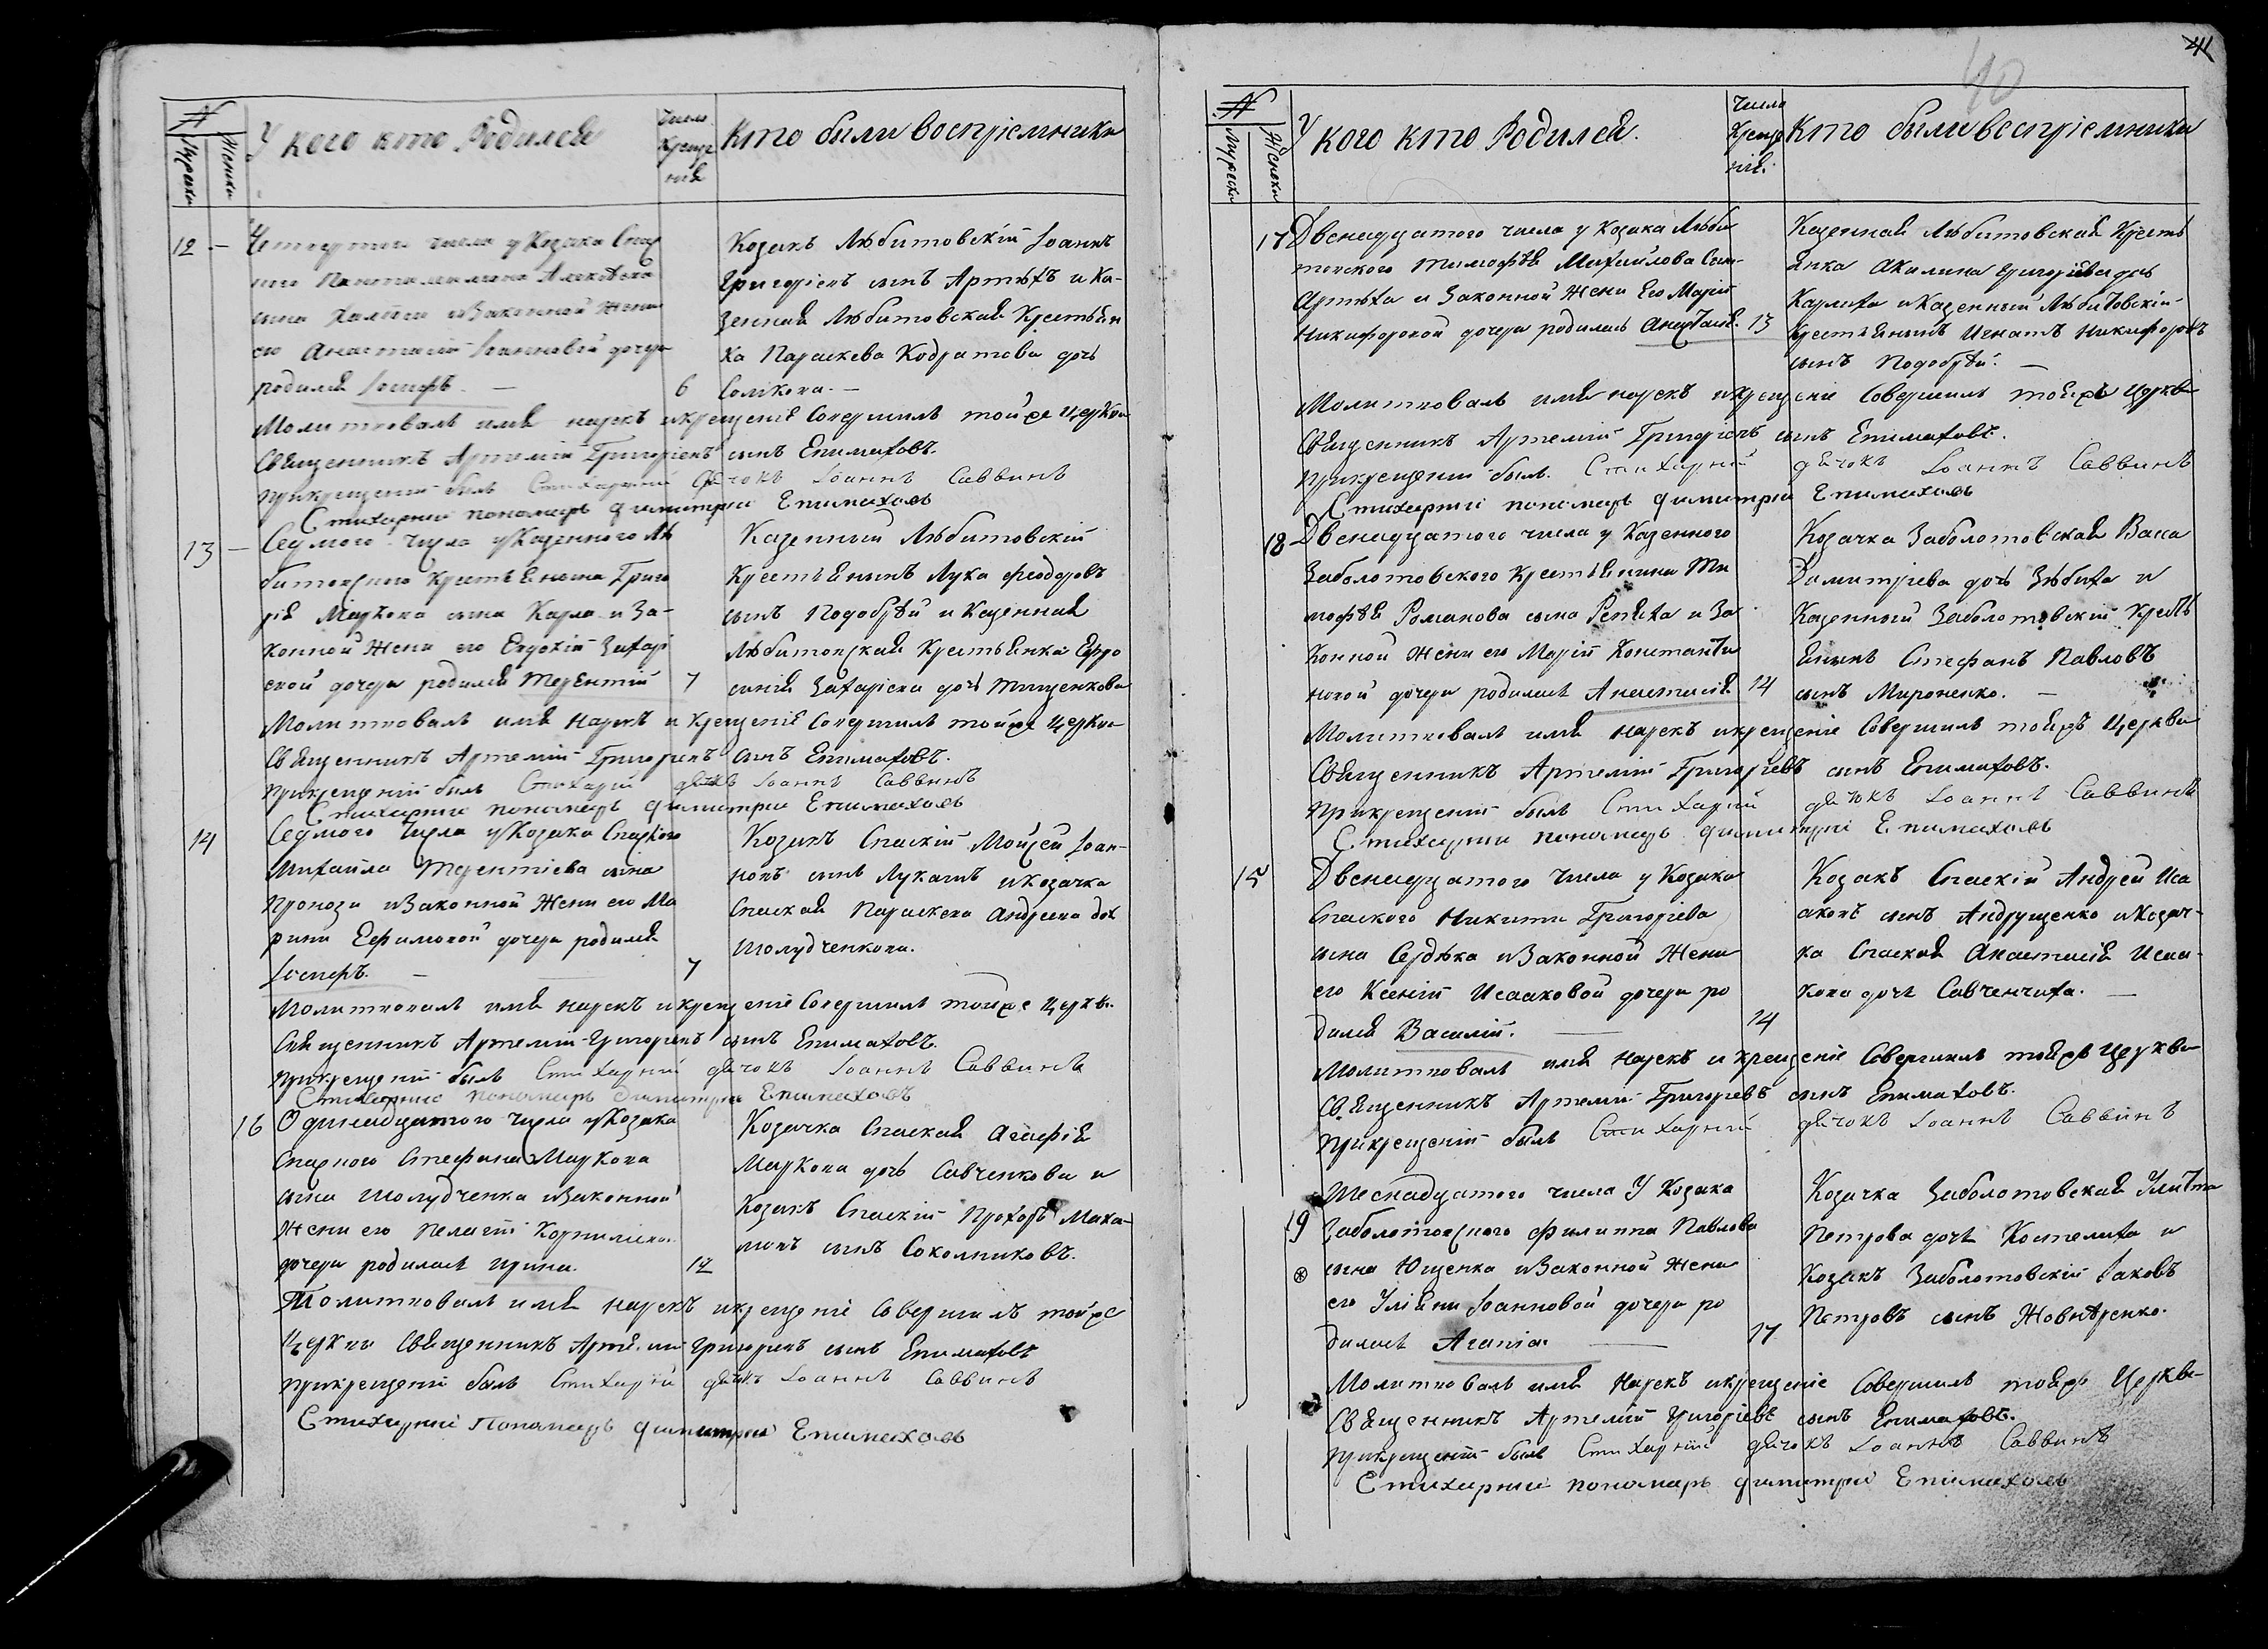 №
Мужеска
Женска
У кого кто Родился
Число
Креще
нія
Кто были воспріемники
12 –
Четвертого числа у Козака Спас
ного Пантилимона Алексѣева
сына Халѣви и Законной жены
его Анастасіи Іоанновой дочери
родился Іосифъ. — 6
Козакъ Любитовскій Іоаннъ
Григоріевъ сынъ Артюхъ и Ка-
зенная Любитовская Крестьян
ка Параскева Кодратова дочь
Солікова. —
Молитвовалъ имя нарекъ и крещеніе Совершилъ тойже Церкви
Священникъ Артемій Григоріевъ сынъ Епимаховъ.
прикрещеніи былъ Стихарній дячокъ Іоаннъ Саввинъ
Стихарній пономарь Димитрій Епимаховъ
13 –
Седмого числа у Казенного Лю
битовского Крестьянина Григо
рія Маркова сына Карла и За-
конной жены его Евдокіи Захарі
евой дочери родился Терентій 7
Казенный Любитовскій
Крестьянинъ Лука Феодоровъ
сынъ Подобрѣй и Казенная
Любитовская Крестьянка Евдо
синія Захаріева дочь Тищенкова
Молитвовалъ имя нарекъ и крещеніе Совершилъ тойже Церкви
Священникъ Артемій Григоріевъ сынъ Епимаховъ.
прикрещеніи былъ Стихарій дячокъ Іоаннъ Саввинъ
Стихарній пономарь Димитрій Епимаховъ
14
Седмого числа у Козака Спаского
Михайла Терентіева сына
Пронози и Законной жены его Ма
рини Ефимовой дочери родился
Іосифъ. — 7
Козакъ Спаскій Мойсей Іоан-
новъ сынъ Лукашъ и Козачка
Спаская Параскева Андреева доч
Шолудченкова.
Молитвовалъ имя нарекъ и крещеніе Совершилъ тойже Церкви
Священникъ Артемій Григоріевъ сынъ Епимаховъ.
прикрещеніи былъ Стихарній дячокъ Іоаннъ Саввинъ
Стихарній пономарь Димитрій Епимаховъ
16
Одинадцатого числа у Козака
Спаского Стефана Маркова
сына Шолудченка и Законной
жены его Пелагіи Корниліевой
дочери родилась Ирина. 12
Козачка Спаская Агафія
Маркова дочь Савченкова и
Козакъ Спаскій Прохоръ Мака-
ровъ сынъ Соколниковъ.
Молитвовалъ имя нарекъ и крещеніе Совершилъ тойже
Церкви Священникъ Артемій Григоріевъ сынъ Епимаховъ
прикрещеніи былъ Стихарній дячокъ Іоаннъ Саввинъ
Стихарній Пономарь Димитрій Епимаховъ
40
41
№
Мужеска
Женска
У кого кто Родился.
Число
Креще
нія.
Кто были воспріемники
17
Двенадцатого числа у Козака Люби
товского Тимофѣя Михайлова Сын-
Артюха и Законной жены Его Маріи
Никифоровой дочери родилась Анастасія. 13
Казенная Любитовская Кресть
янка Акилина Григоріева дочь
Карлиха и Казенный Любитовскій
Крестьянинъ Игнатъ Никифоровъ
сынъ Подобрѣй. —
Молитвовалъ имя нарекъ и крещеніе Совершилъ тояжъ Церкви
Священникъ Артемій Григоріевъ сынъ Епимаховъ.
прикрещеніи былъ Стихарній дячокъ Іоаннъ Саввинъ
Стихарній пономарь Димитрій Епимаховъ
18
Двенадцатого числа у Казенного
Заболотовского Крестьянина Ти
мофѣя Романова сына Репѣха и За
Конной жены его Маріи Константи
новой дочери родилась Анастасія 14
Козачка Заболотовская Васса
Димитріева дочь Зюбиха и
Казенный Заболотовскій Кресть
янинъ Стефанъ Павловъ
сынъ Мироненко. —
Молитвовалъ имя нарекъ и крещеніе Совершилъ тояжъ Церкви
Священникъ Артемій Григоріевъ сынъ Епимаховъ.
прикрещеніи былъ Стихарній дячокъ Іоаннъ Саввинъ
Стихарній пономарь Димитрій Епимаховъ
15
Двенадцатого числа у Козака
Спаского Никити Григоріева
сына Сердюка и Законной Жены
его Ксеніи Исааковой дочери ро
дился Василій. — 14
Козакъ Спаскій Андрей Иса
аковъ сынъ Андрущенко и Козач-
ка Спаская Анастасія Исаа-
кова дочь Савченчиха. —
Молитвовалъ имя нарекъ и крещеніе Совершилъ тояжъ Церкви
Священникъ Артемій Григоріевъ сынъ Епимаховъ.
прикрещеніи былъ Стихарній дячокъ Іоаннъ Саввинъ
19
Шеснадцатого числа У Козака
Заболотовского Филиппа Павлова
сына Ющенка и Законной жены
его Уліяни Іоанновой дочери ро
дилась Агапіа. — 17
Козачка Заболотовская Улита
Петрова дочь Костелиха и
Козакъ Заболотовскій Іаковъ
Петровъ сынъ Жовнѣренко.
Молитвовалъ имя нарекъ и крещеніе Совершилъ тояжъ Церкви
Священникъ Артемій Григоріевъ сынъ Епимаховъ.
прикрещеніи былъ Стихарній дячокъ Іоаннъ Саввинъ
Стихарній пономарь Димитрій Епимаховъ